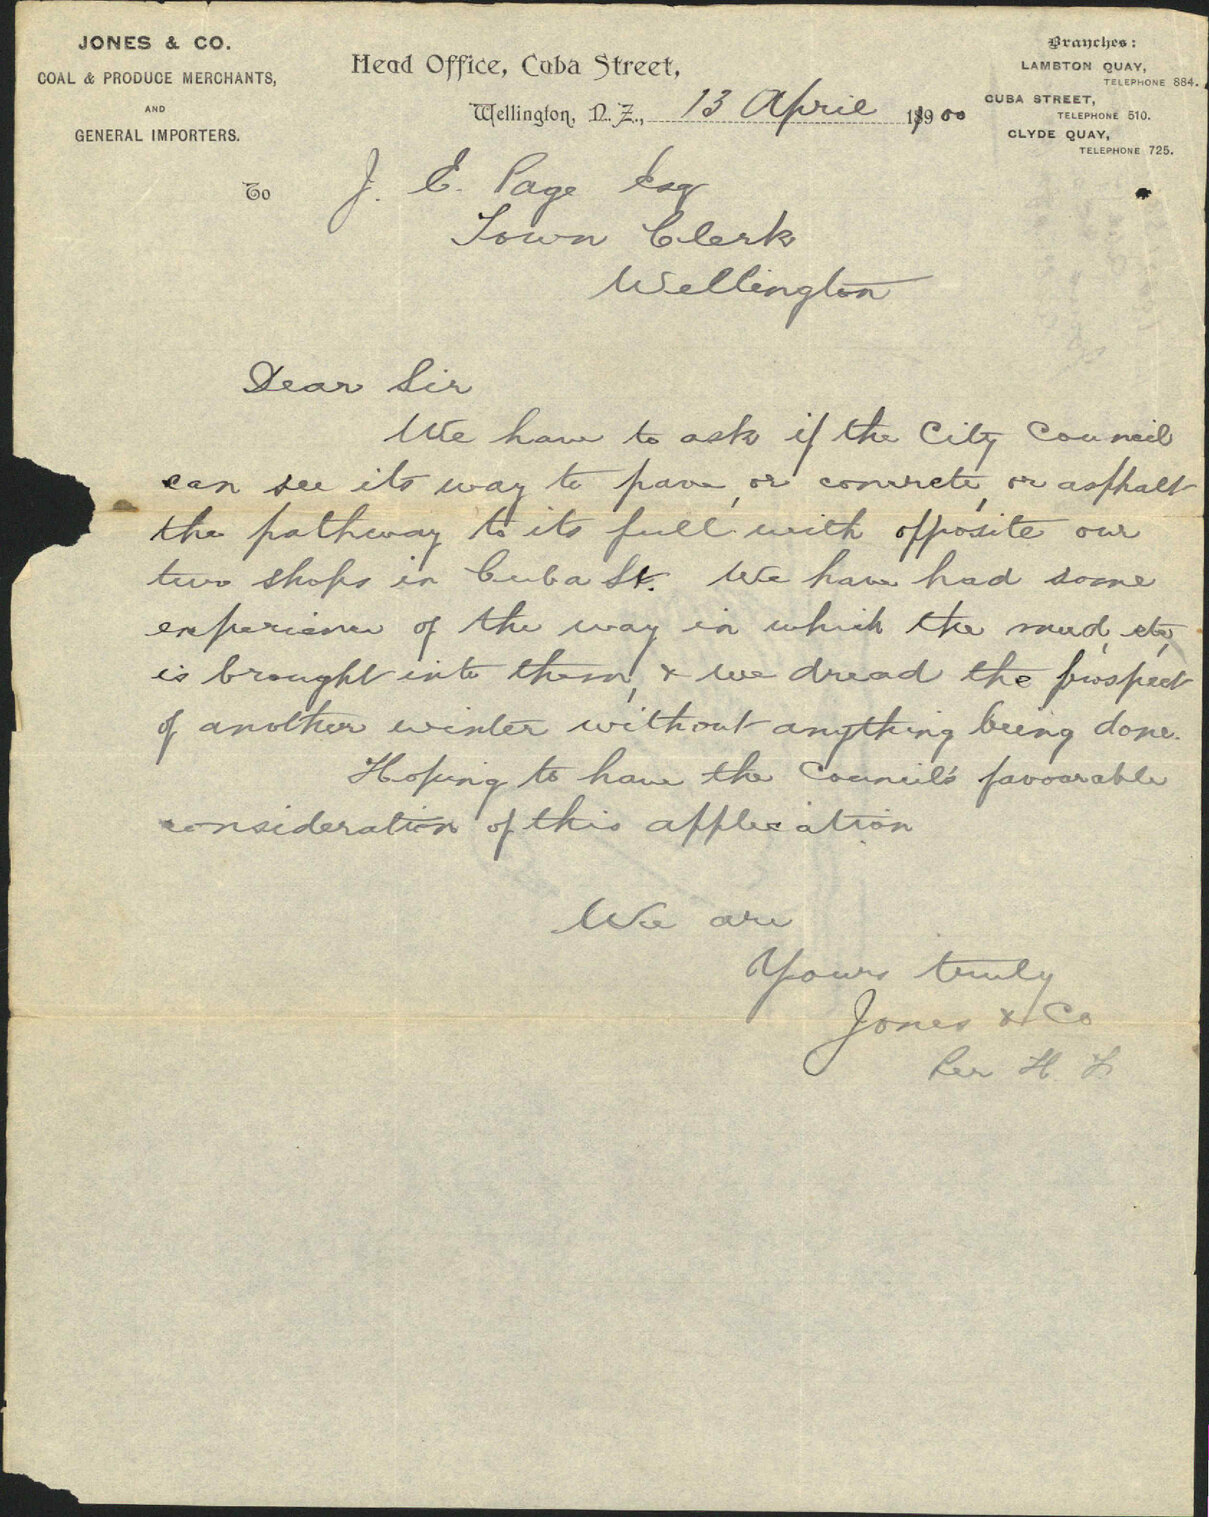 JONES & CO.
COAL & PRODUCE MERCHANTS,
AND
GENERAL IMPORTERS.
Head Office, Cuba Street,
Wellington, N.Z., 13 April 1900
Branches:
LAMBTON QUAY,
TELEPHONE 884.
CUBA STREET,
TELEPHONE 510.
CLYDE QUAY,
TELEPHONE 725.
To J. E. Page Esq
Town Clerk
Wellington
Dear Sir
We have to ask if the City Council
can see its way to pave, or concrete, or asphalt
the pathway to its full width opposite our
two shops in Cuba St. We have had some
experience of the way in which the mud, etc,
is brought into them, & we dread the prospect
of another winter without anything being done.
Hoping to have the Council's favourable
consideration of this application
We are
Yours truly
Jones & Co
Per H.